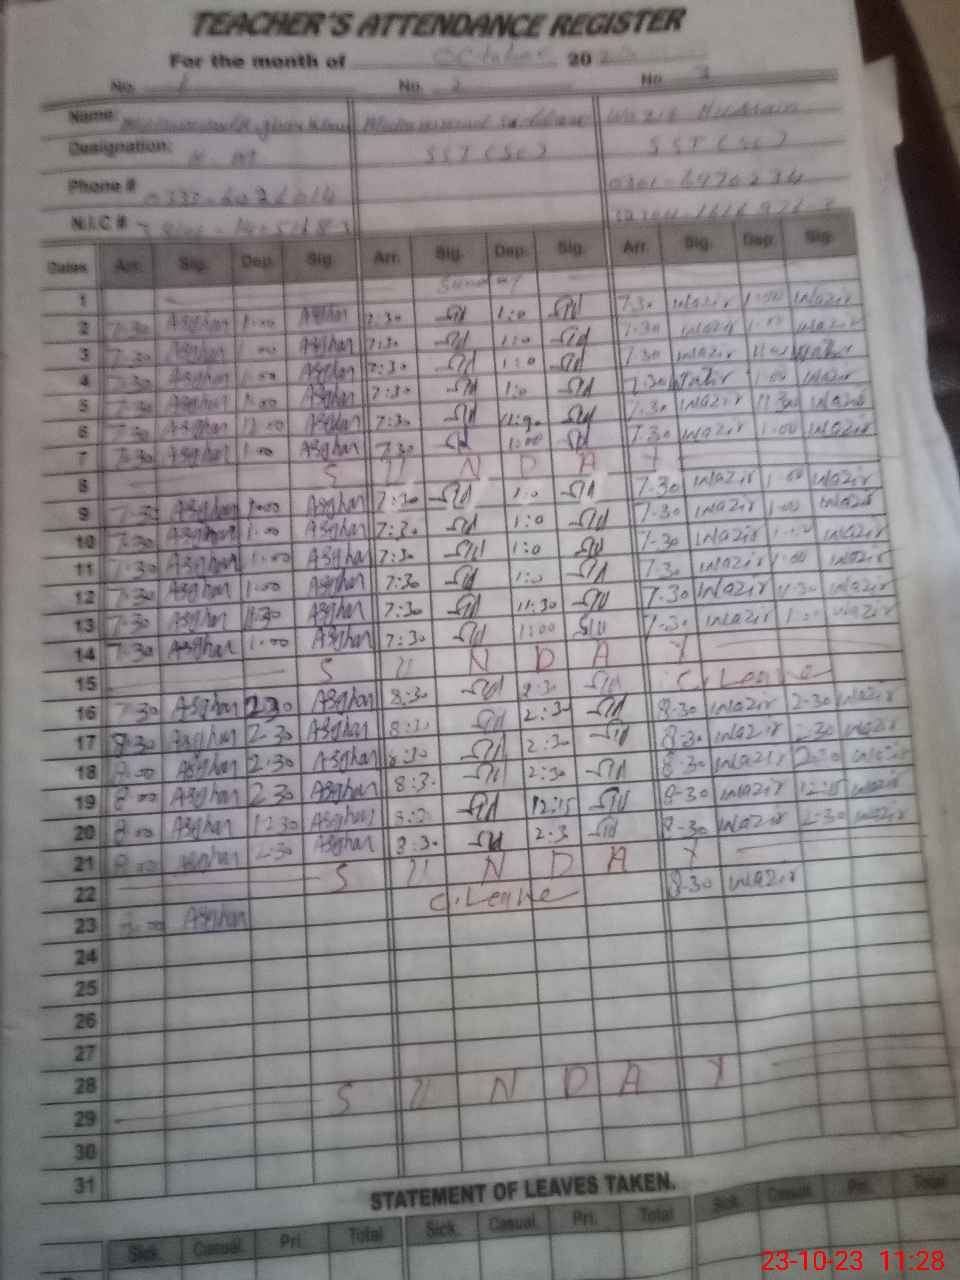 TEACHER'S ATTENDANCE REGISTER
For the month of October 20
No. 1 No. 2 No. 3
Name: Muhammad Wazir Hussain
Designation: SST (SC) SST (SC)
Phone # 0301-6976234
N.I.C #
Dates Arr. Sig. Dep. Sig. Arr. Sig. Dep. Sig. Arr. Sig. Dep. Sig.
1 Sunday
2 7:30 Asghar 1:00 Asghar 7:30 1:0 7:30 Wazir 1:00 Wazir
3 7:30 Asghar 1:00 Asghar 7:30 1:0 7:30 Wazir 1:00 Wazir
4 7:30 Asghar 1:00 Asghar 7:30 1:0 7:30 Wazir 1:00 Wazir
5 7:30 Asghar 1:00 Asghar 7:30 1:0 7:30 Wazir 1:00 Wazir
6 7:30 Asghar Asghar 7:30 7:30 Wazir 11:30 Wazir
7 7:30 Asghar 1:00 Asghar 7:30 1:00 7:30 Wazir 1:00 Wazir
8 S U N D A Y
9 7:30 Asghar 1:00 Asghar 7:30 1:0 7:30 Wazir 1:00 Wazir
10 7:30 Asghar 1:00 Asghar 7:30 1:0 7:30 Wazir 1:00 Wazir
11 7:30 Asghar 1:00 Asghar 7:30 1:0 7:30 Wazir 1:00 Wazir
12 7:30 Asghar 1:00 Asghar 7:30 1:0 7:30 Wazir 1:00 Wazir
13 7:30 Asghar 11:30 Asghar 7:30 11:30 7:30 Wazir 11:30 Wazir
14 7:30 Asghar 1:00 Asghar 7:30 1:00 7:30 Wazir 1:00 Wazir
15 S U N D A Y
16 7:30 Asghar 2:30 Asghar 8:30 2:30 C. Leave
17 8:30 Asghar 2:30 Asghar 8:30 2:30 8:30 Wazir 2:30 Wazir
18 8:00 Asghar 2:30 Asghar 8:30 2:30 8:30 Wazir 2:30 Wazir
19 8:00 Asghar 2:30 Asghar 8:30 2:30 8:30 Wazir 2:30 Wazir
20 8:00 Asghar 12:30 Asghar 12:15 8:30 Wazir 12:15 Wazir
21 8:00 Asghar 2:30 Asghar 8:30 2:3 8:30 Wazir 2:30 Wazir
22 S U N D A Y
23 8:00 Asghar C. Leave 8:30 Wazir
24
25
26
27
28
29 S U N D A Y
30
31
STATEMENT OF LEAVES TAKEN.
Sick. Casual. Pri. Total Sick. Casual. Pri. Total Sick. Casual. Pri. Total
23-10-23 11:28